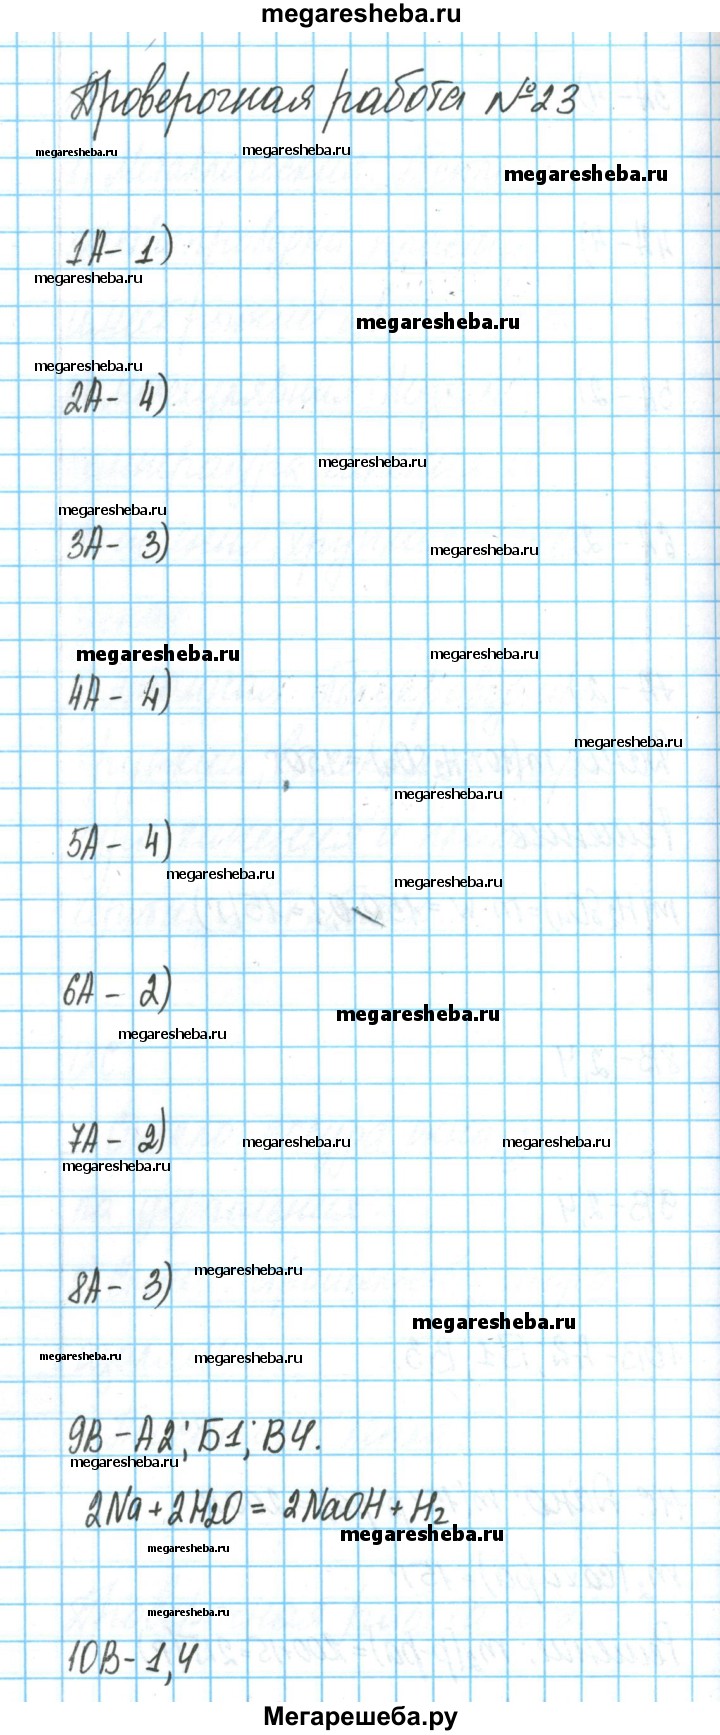 megaresheba.ru
Проверочная работа №23
megaresheba.ru megaresheba.ru
megaresheba.ru
1А - 1)
megaresheba.ru
megaresheba.ru
megaresheba.ru
2А - 4)
megaresheba.ru
megaresheba.ru
3А - 3)
megaresheba.ru
megaresheba.ru megaresheba.ru
4А - 4)
megaresheba.ru
megaresheba.ru
5А - 4)
megaresheba.ru
megaresheba.ru
6А - 2)
megaresheba.ru
megaresheba.ru
7А - 2)
megaresheba.ru megaresheba.ru
megaresheba.ru
8А - 3)
megaresheba.ru
megaresheba.ru
megaresheba.ru megaresheba.ru
9В - А2; Б1; В4.
megaresheba.ru
2Na + 2H₂O = 2NaOH + H₂
megaresheba.ru
megaresheba.ru
megaresheba.ru
10В - 1,4
Мегарешеба.ру